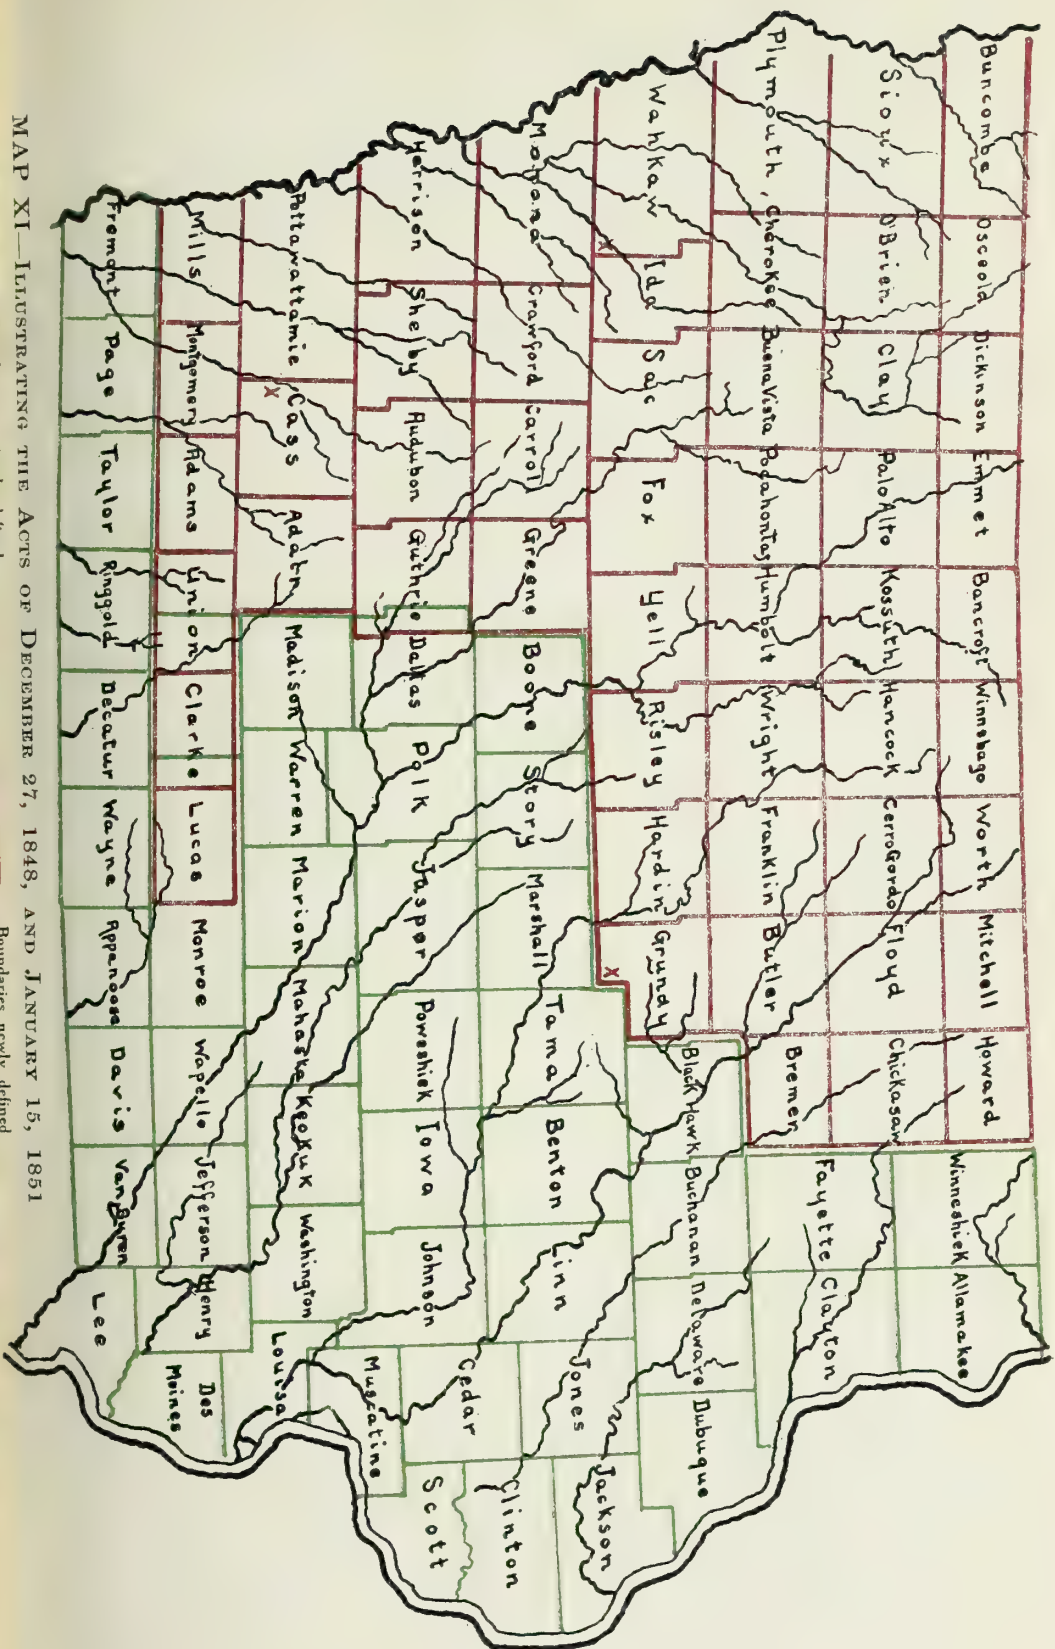 Buncombe Osceola Dickinson Emmet Bancroft Winnebago Worth Mitchell Howard Winneshiek Allamakee
Sioux O'Brien Clay Palo Alto Kossuth Hancock Cerro Gordo Floyd Chickasaw
Fayette Clayton
Plymouth Cherokee Buena Vista Pocahontas Humbolt Wright Franklin Butler Bremer
Wahkaw Ida Sac Fox Yell Risley Hardin Grundy Black Hawk Buchanan Delaware Dubuque
x
x
Monona Crawford Carrol Greene Boone Story Marshall Tama Benton Linn Jones Jackson
Harrison Shelby Audubon Guthrie Dallas Polk Jasper Poweshiek Iowa Johnson Cedar Clinton
Muscatine Scott
Pottawattamie Cass Adair Madison Warren Marion Mahaska Keokuk Washington Louisa
x
Mills Montgomery Adams Union Clarke Lucas Monroe Wapello Jefferson Henry Des
Moines
Fremont Page Taylor Ringgold Decatur Wayne Appanoose Davis Van Buren Lee
MAP XI—ILLUSTRATING THE ACTS OF DECEMBER 27, 1848, AND JANUARY 15, 1851
Boundaries newly defined